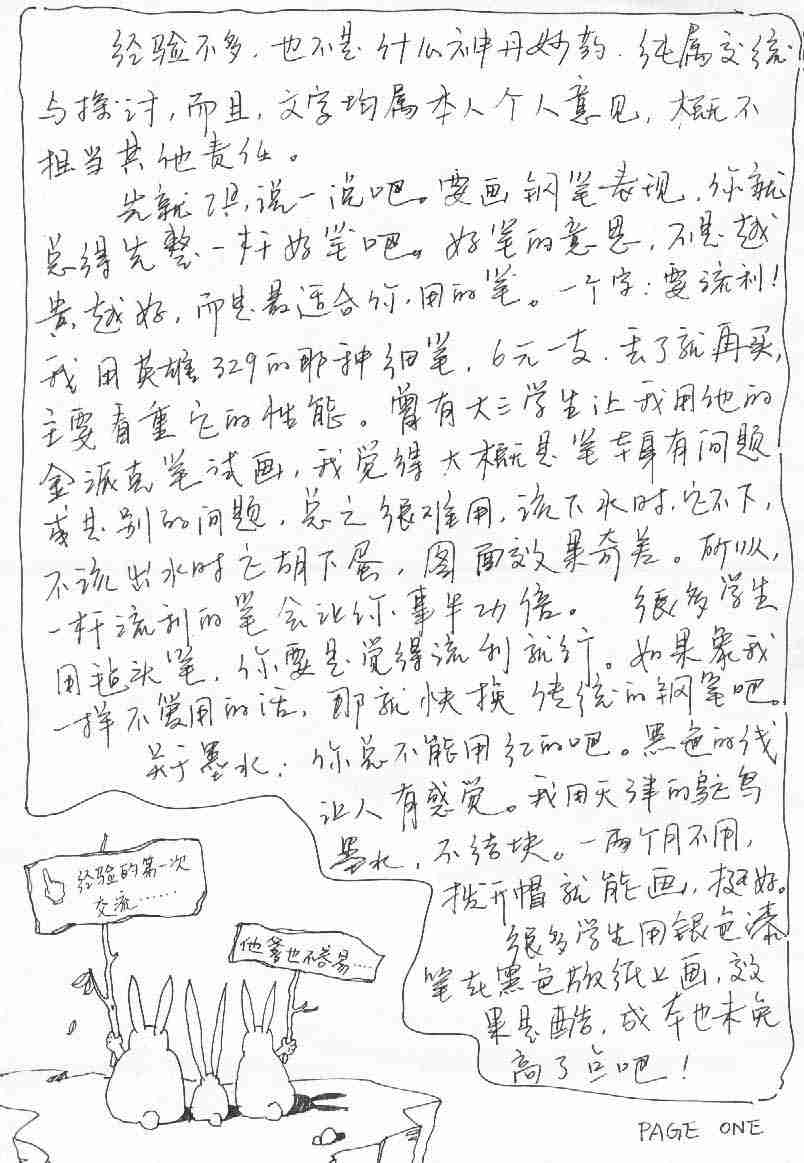 经验不多，也不是什么神丹妙药，纯属交流
与探讨，而且，文字均属本人个人意见，概不
担当其他责任。
先就工具说一说吧。要画钢笔表现，你就
总得先整一杆好笔吧。好笔的意思，不是越
贵越好，而是最适合你用的笔。一个字：要流利！
我用英雄329的那种细笔，6元一支，丢了就再买，
主要看重它的性能。曾有大三学生让我用他的
金派克笔试画，我觉得大概是笔本身有问题
或是别的问题，总之很难用，该下水时，它不下，
不该出水时它胡下蛋，图面效果奇差。所以，
一杆流利的笔会让你事半功倍。 很多学生
用毡头笔，你要是觉得流利就行。如果象我
一样不爱用的话，那就快换传统的钢笔吧。
关于墨水：你总不能用红的吧。黑色的线
让人有感觉。我用天津的鸵鸟
墨水，不结块。一两个月不用，
拔开帽就能画，挺好。
很多学生用银色漆
笔在黑色版纸上画，效
果是酷，成本也未免
高了点吧！
经验的第一次
交流……
他爹也不容易……
PAGE ONE